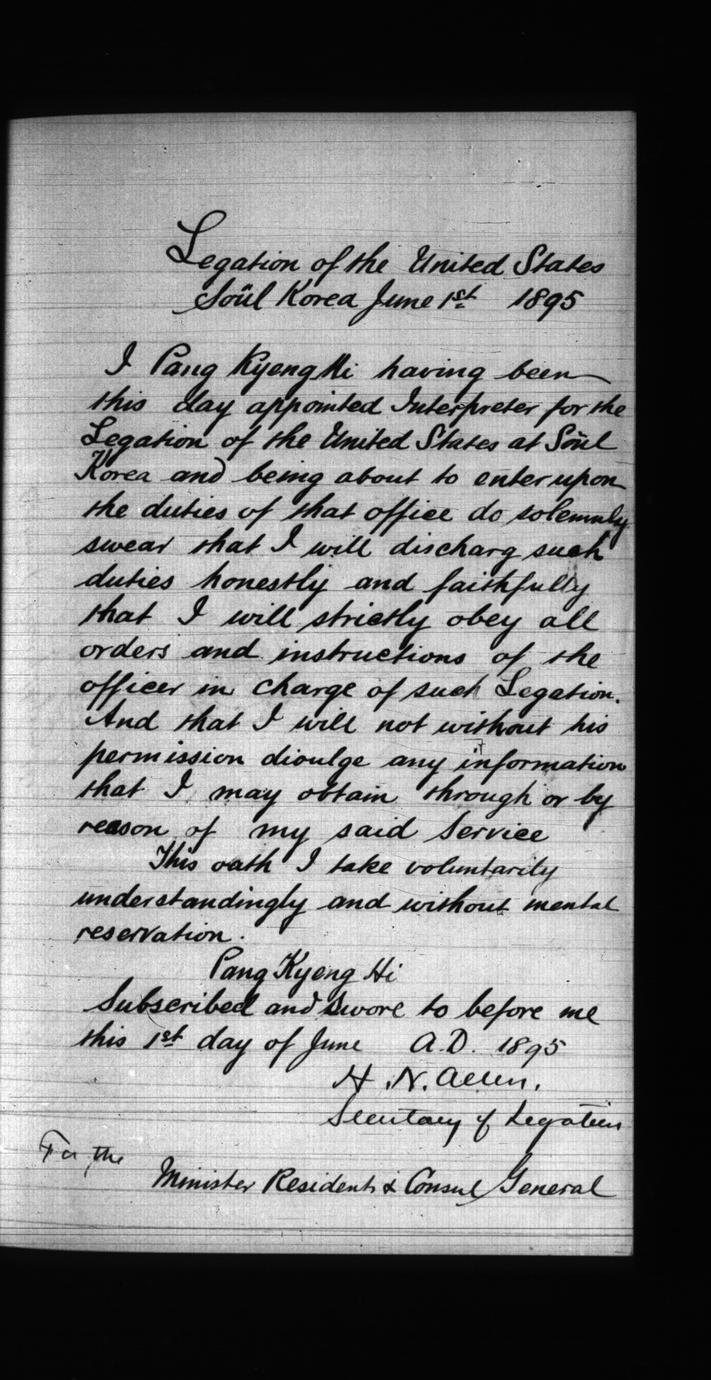 Legation of the United States
Soül Korea June 1st 1895
I Pang Kyeng Hi having been
this day appointed Interpreter for the
Legation of the United States at Soül
Korea and being about to enter upon
the duties of that office do solemnly
swear that I will discharg such
duties honestly and faithfully
that I will strictly obey all
orders and instructions of the
officer in charge of such Legation.
And that I will not without his
permission divulge any information
that I may obtain through or by
reason of my said Service
This oath I take voluntarily
understandingly and without mental
reservation.
Pang Kyeng Hi
Subscribed and swore to before me
this 1st day of June A.D. 1895
H. N. Allen.
Secretary of Legation
For the
Minister Resident & Consul General